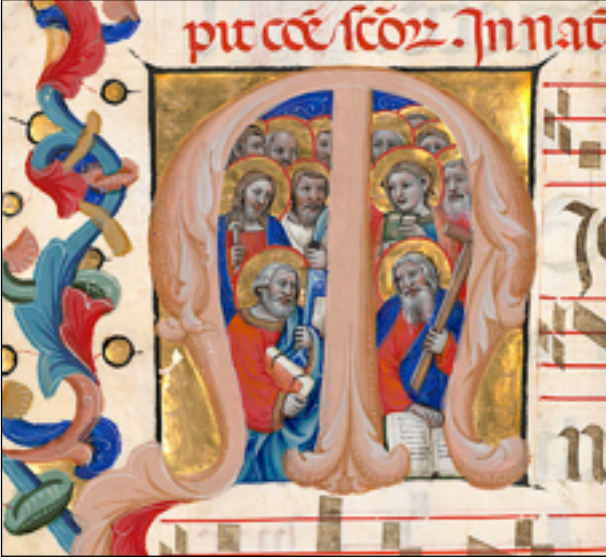 pit cōe scōꝝ. In nat̄
M
n